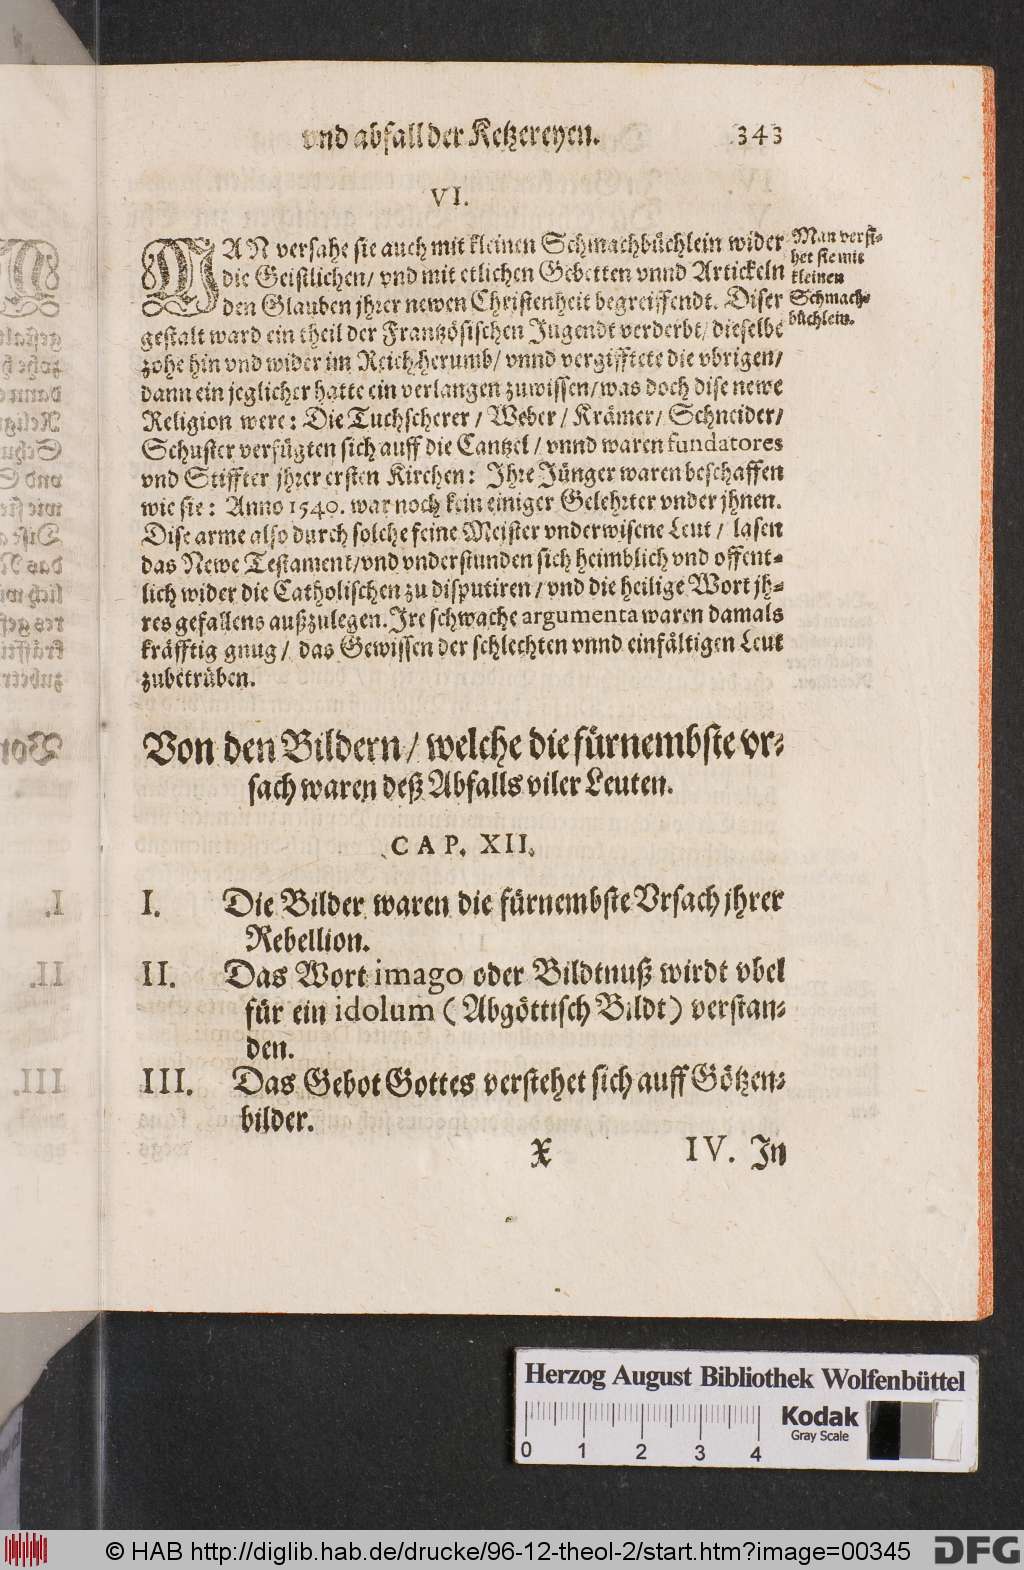 vnd abfall der Ketzereyen. 343
VI.
MAN versahe sie auch mit kleinen Schmachbüchlein wider
die Geistlichen/ vnd mit etlichen Gebetten vnnd Artickeln
den Glauben jhrer newen Christenheit begreiffendt. Diser
gestalt ward ein theil der Frantzösischen Jugendt verderbt/ dieselbe
zohe hin vnd wider im Reich herumb/ vnnd vergifftete die vbrigen/
dann ein jeglicher hatte ein verlangen zuwissen/ was doch dise newe
Religion were: Die Tuchscherer/ Weber/ Krämer/ Schneider/
Schuster verfügten sich auff die Cantzel/ vnnd waren fundatores
vnd Stiffter jhrer ersten Kirchen: Ihre Jünger waren beschaffen
wie sie: Anno 1540. war noch kein einiger Gelehrter vnder jhnen.
Dise arme also durch solche feine Meister vnderwisene Leut/ lasen
das Newe Testament/ vnd vnderstunden sich heimblich vnd offent-
lich wider die Catholischen zu disputiren/ vnd die heilige Wort jh-
res gefallens außzulegen. Ire schwache argumenta waren damals
kräfftig gnug/ das Gewissen der schlechten vnnd einfältigen Leut
zubetrüben.
Man verse-
het sie mit
kleinen
Schmach-
büchlein.
Von den Bildern/ welche die fürnembste vr-
sach waren deß Abfalls viler Leuten.
CAP. XII.
I. Die Bilder waren die fürnembste Vrsach jhrer
Rebellion.
II. Das Wort imago oder Bildtnuß wirdt vbel
für ein idolum (Abgöttisch Bildt) verstan-
den.
III. Das Gebot Gottes verstehet sich auff Götzen-
bilder.
X IV. In
Herzog August Bibliothek Wolfenbüttel
Kodak
Gray Scale
0 1 2 3 4
© HAB http://diglib.hab.de/drucke/96-12-theol-2/start.htm?image=00345 DFG